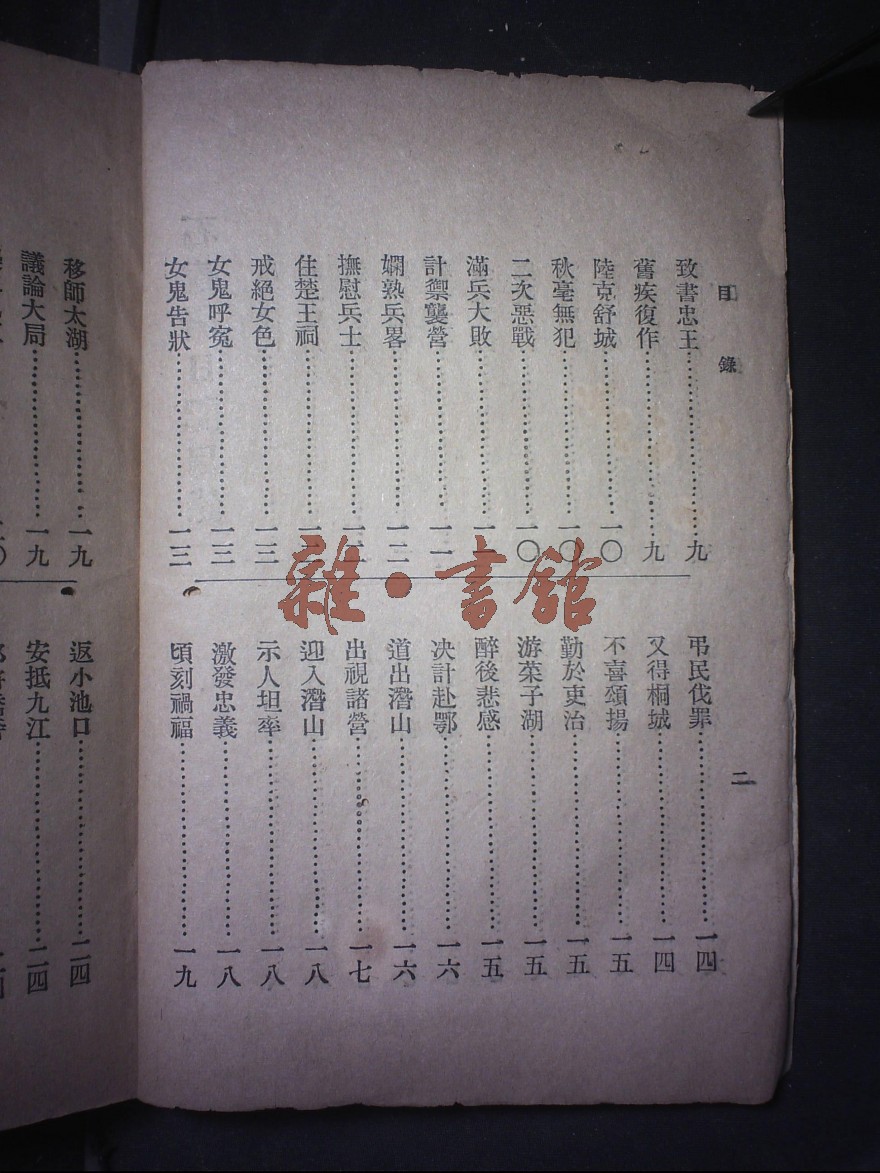 目錄
致書忠王……九
舊疾復作……九
陸克舒城……一〇
秋毫無犯……一〇
二次惡戰……一〇
滿兵大敗……一一
計禦襲營……一一
嫻熟兵畧……一二
撫慰兵士……一二
住楚王祠……一二
戒絕女色……一三
女鬼呼冤……一三
女鬼告狀……一三
弔民伐罪……一四
又得桐城……一四
不喜頌揚……一五
勤於吏治……一五
游菜子湖……一五
醉後悲感……一五
决計赴鄂……一六
道出潛山……一六
出視諸營……一七
迎入潛山……一八
示人坦率……一八
激發忠義……一八
頃刻禍福……一九
二
移師太湖……一九
議論大局……一九
返小池口……二四
安抵九江……二四
雜·書館